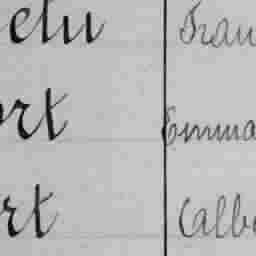 elu Fran
ort Emma
rt Calb